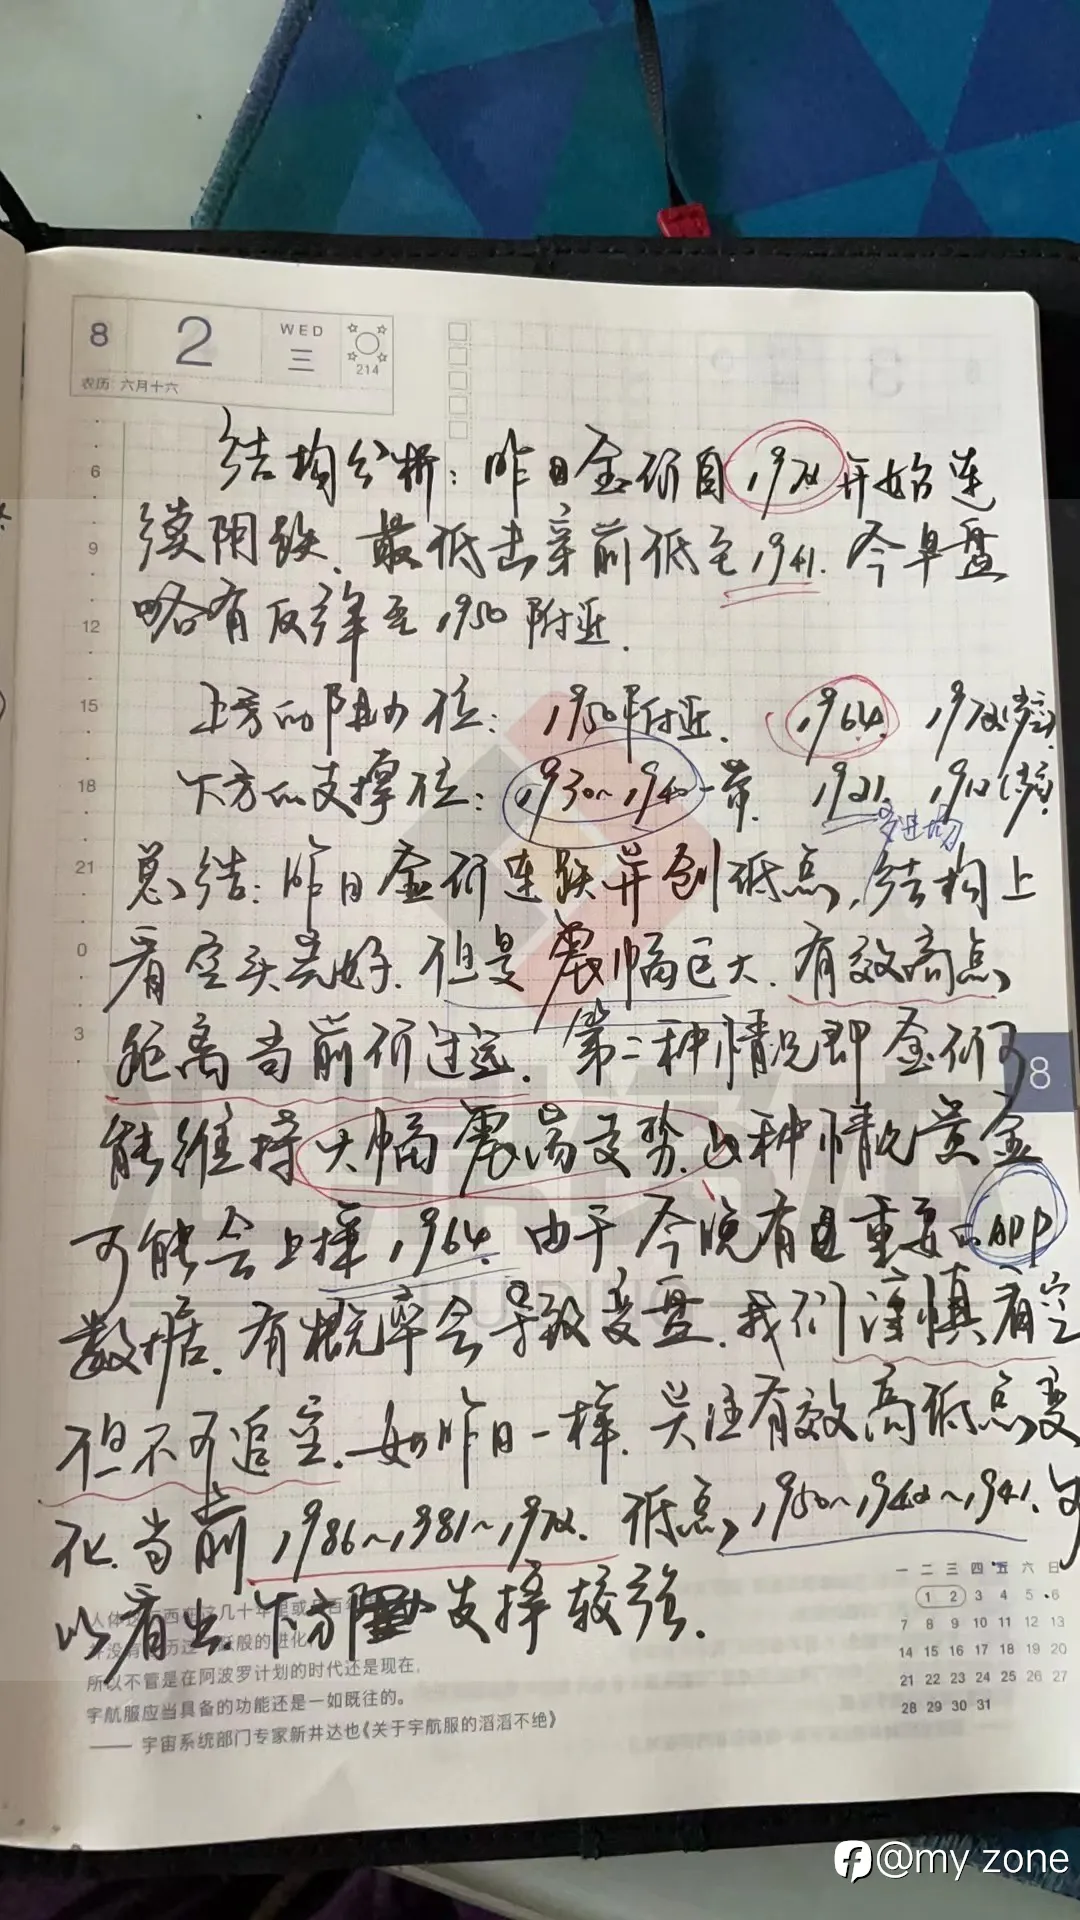 8 2 WED 三 214
农历 六月十六
结构分析：昨日金价自1972开始连
续阴跌．最低击穿前低至1941．今早盘
略有反弹至1950附近．
上方的阻力位：1950附近． 1964． 1972(
下方的支撑位：1930～1940一带 1921． 1912(
多进场
总结：昨日金价连跌并创低点，结构上
看空头完好．但是震幅巨大．有效高点
距离当前价过远．第二种情况即金价可
能维持大幅震荡走势．此种情况黄金
可能会上探1964．由于今晚有重要的ADP
数据．有概率会导致变盘．我们谨慎看空
但不可追空．如昨日一样．关注有效高低点变
化．当前1986～1981～1972．低点，1950～1942～1941．可
以看出．下方支撑较强．
6
9
12
15
18
21
0
3
8
所以不管是在阿波罗计划的时代还是现在，
宇航服应当具备的功能还是一如既往的。
—— 宇宙系统部门专家新井达也《关于宇航服的滔滔不绝》
一 二 三 四 五 六 日
1 2 3 4 5 6
7 8 9 10 11 12 13
14 15 16 17 18 19 20
21 22 23 24 25 26 27
28 29 30 31
@my zone